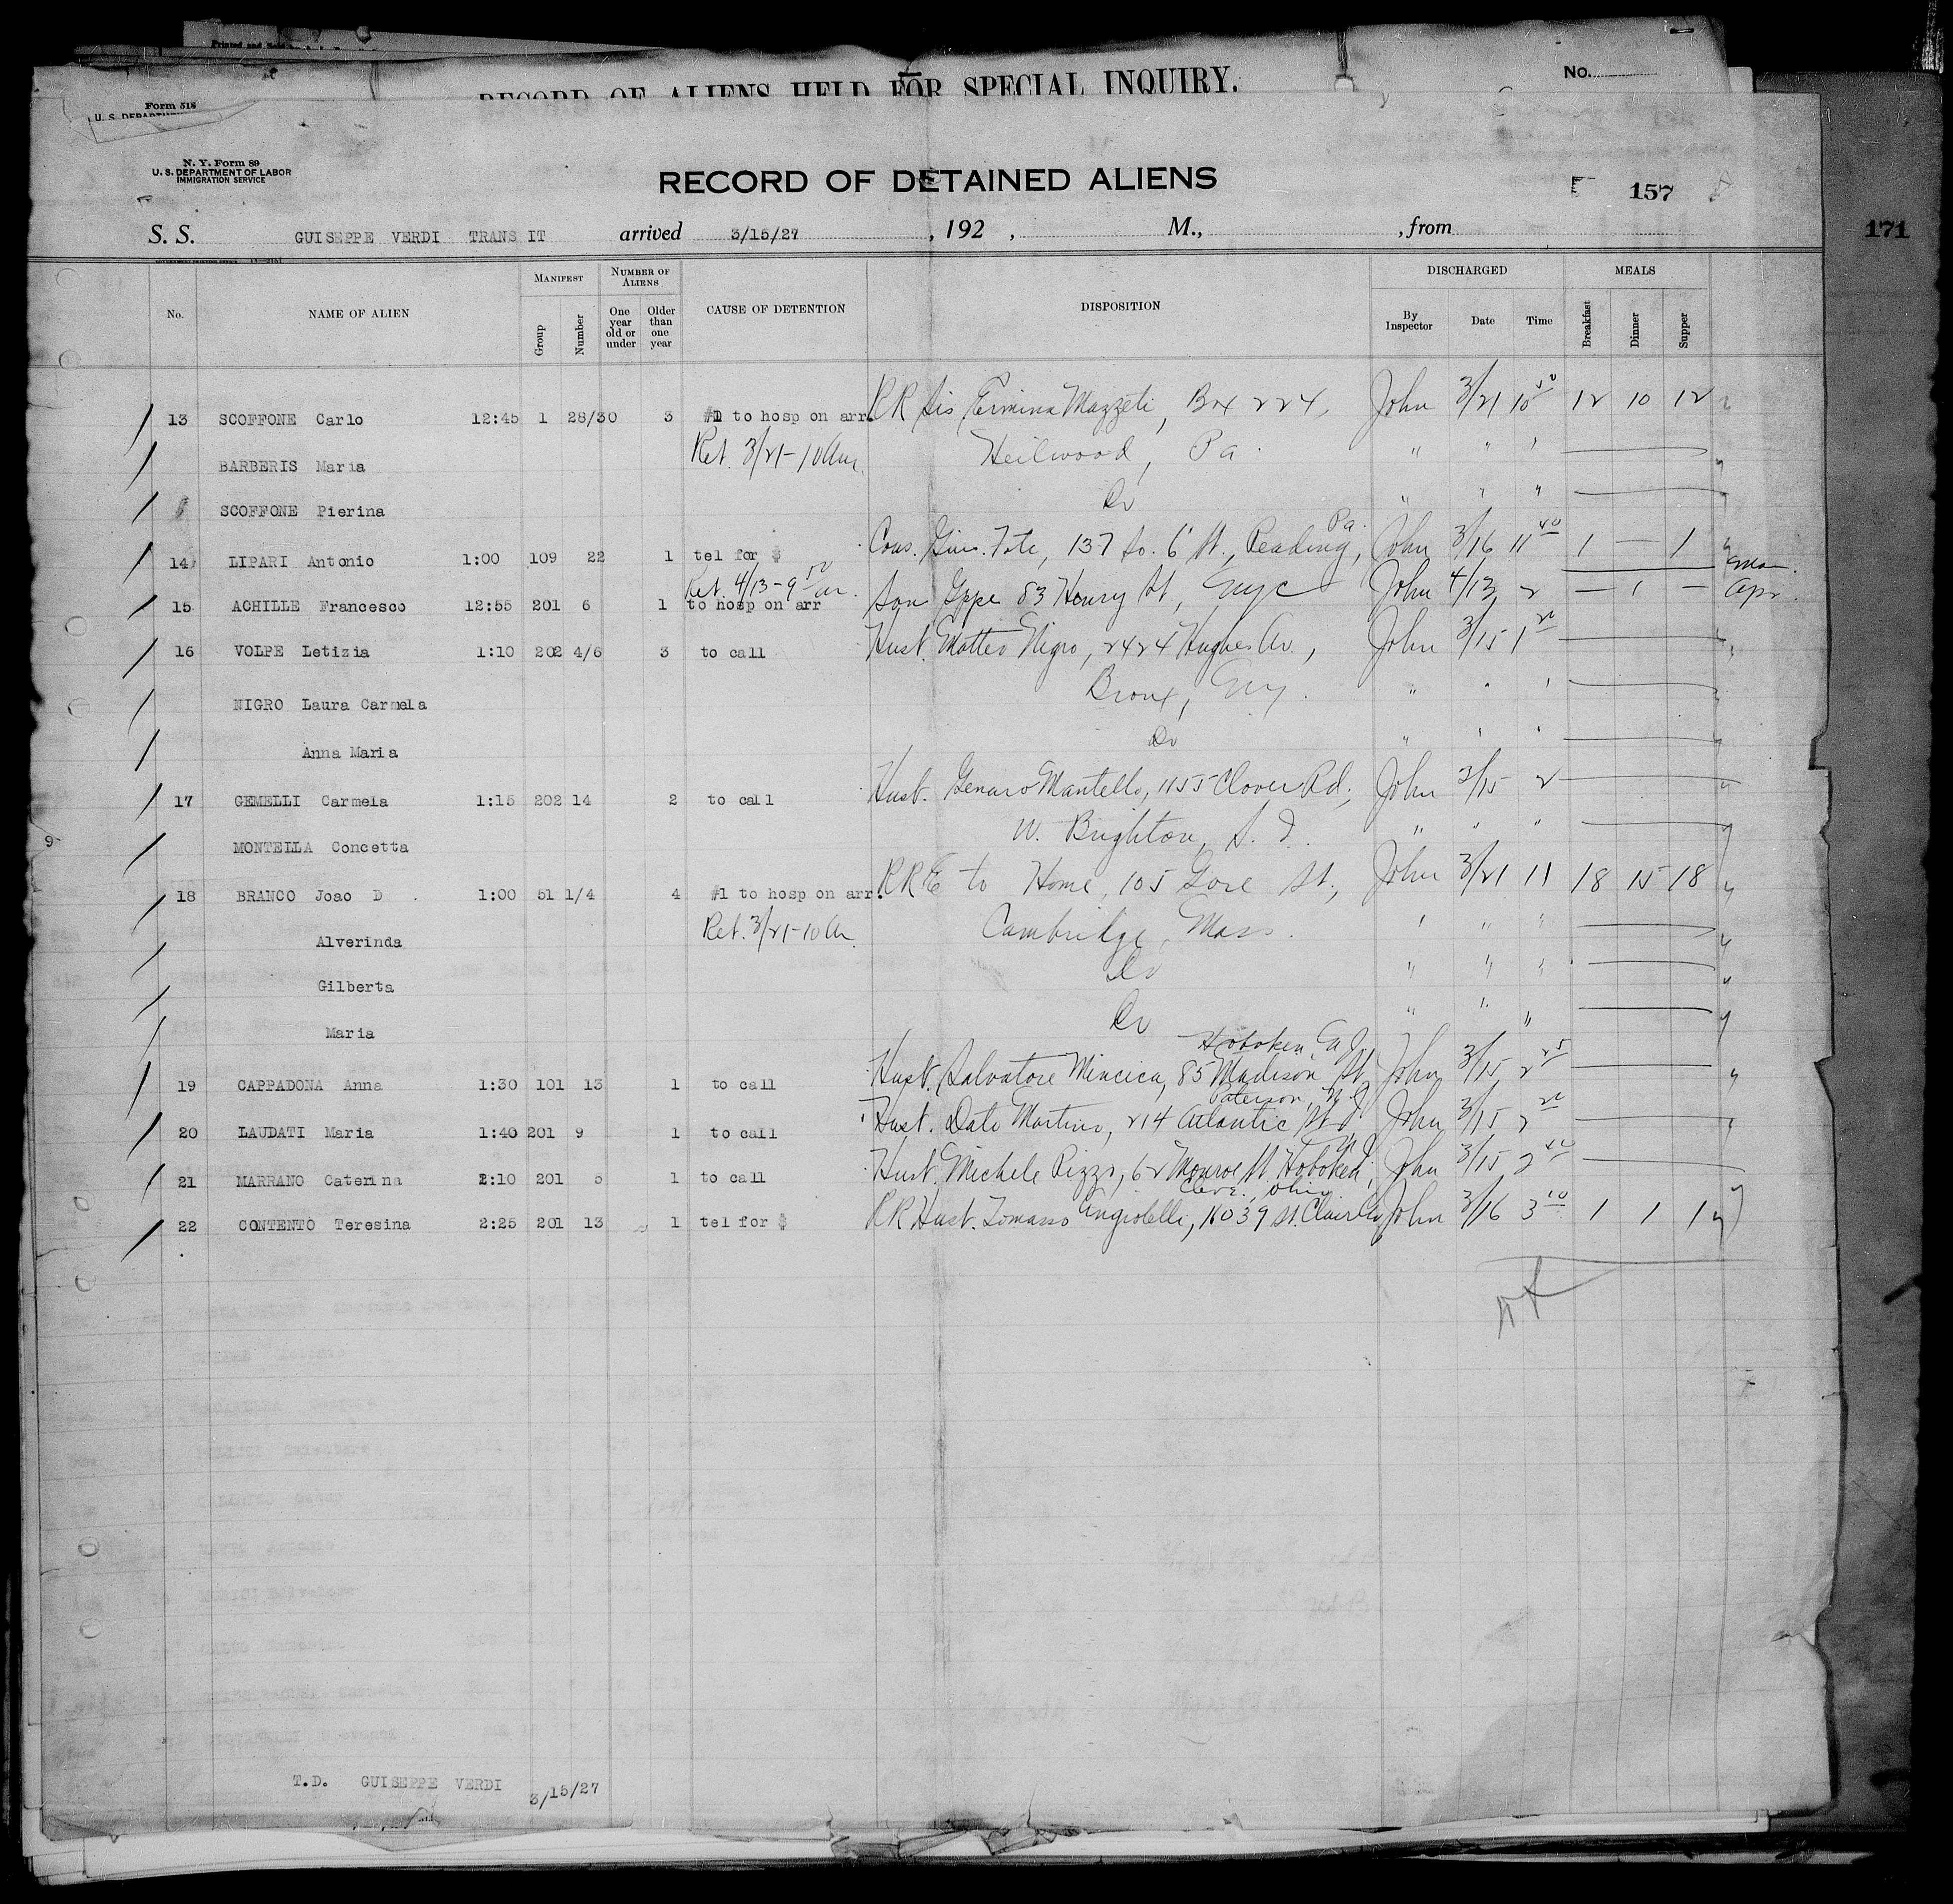 RECORD OF ALIENS HELD FOR SPECIAL INQUIRY.
No.
Form 518
U. S. DEPARTMENT
N. Y. Form 89
U. S. DEPARTMENT OF LABOR
IMMIGRATION SERVICE
RECORD OF DETAINED ALIENS
157
171
S. S. GUISEPPE VERDI TRANSIT arrived 3/15/27, 192 , M., , from
No. NAME OF ALIEN MANIFEST Group Number NUMBER OF ALIENS One year old or under Older than one year CAUSE OF DETENTION DISPOSITION DISCHARGED By Inspector Date Time MEALS Breakfast Dinner Supper
13 SCOFFONE Carlo 12:45 1 28/30 3 #1 to hosp on arr. RR Sis Ermina Mazzeti, Box 224, John 3/21 10 50 12 10 12
BARBERIS Maria Ret. 3/21-10 am Heilwood, Pa. " " "
SCOFFONE Pierina Do " " "
14 LIPARI Antonio 1:00 109 22 1 tel for $ Cous. Gius. Fote, 137 So. 6 St., Reading, Pa. John 3/16 11 40 1 — 1
15 ACHILLE Francesco 12:55 201 6 1 to hosp on arr Ret. 4/13-9 50 am. Son Gppe 83 Henry St, Nyc John 4/13 2 — 1 — Apr.
16 VOLPE Letizia 1:10 202 4/6 3 to call Hust. Matteo Nigro, 2424 Hughes Av., John 3/15 1 20
NIGRO Laura Carmela Bronx, Ny. " " "
Anna Maria Do " " "
17 GEMELLI Carmela 1:15 202 14 2 to call Hust. Genaro Mantello, 1155 Clover Rd, John 3/15 2
MONTELLA Concetta W. Brighton, S. I. " " "
18 BRANCO Joao D . 1:00 51 1/4 4 #1 to hosp on arr. RRE to Home, 105 Gore St., John 3/21 11 18 15 18
Alverinda Ret. 3/21-10 am Cambridge, Mass. " " "
Gilberta Do " " "
Maria Do " " "
19 CAPPADONA Anna 1:30 101 13 1 to call Hust. Salvatore Mincica, 85 Madison St, Hoboken, NJ John 3/15 2 25
20 LAUDATI Maria 1:40 201 9 1 to call Hust. Dato Martino, 214 Atlantic St Paterson, N.J. John 3/15 2 20
21 MARRANO Caterina 2:10 201 5 1 to call Hust. Michele Rizzo, 62 Monroe St. Hoboken, NJ John 3/15 2 40
22 CONTENTO Teresina 2:25 201 13 1 tel for $ RR Hust. Tomasso Angiolelli, 16039 St. Clair Av Cleve., Ohio John 3/16 3 10 1 1 1
T.D. GUISEPPE VERDI 3/15/27